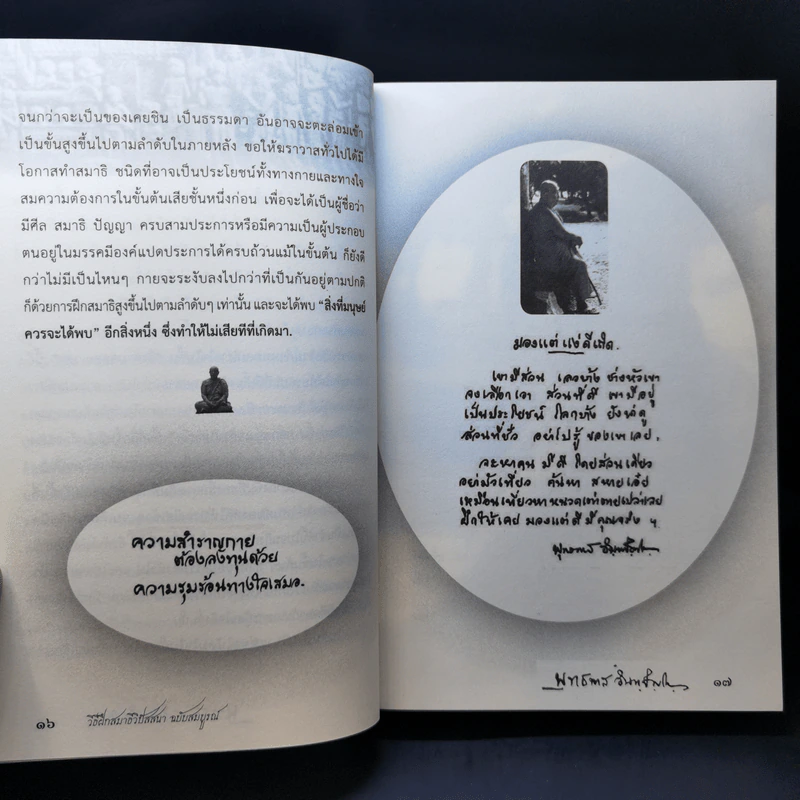 จนกว่าจะเป็นของเคยชิน เป็นธรรมดา อันอาจจะตะล่อมเข้า
เป็นขั้นสูงขึ้นไปตามลำดับในภายหลัง ขอให้ฆราวาสทั่วไปได้มี
โอกาสทำสมาธิ ชนิดที่อาจเป็นประโยชน์ทั้งทางกายและทางใจ
สมความต้องการในขั้นต้นเสียชั้นหนึ่งก่อน เพื่อจะได้เป็นผู้ชื่อว่า
มีศีล สมาธิ ปัญญา ครบสามประการหรือมีความเป็นผู้ประกอบ
ตนอยู่ในมรรคมีองค์แปดประการได้ครบถ้วนแม้ในขั้นต้น ก็ยังดี
กว่าไม่มีเป็นไหนๆ กายจะระงับลงไปกว่าที่เป็นกันอยู่ตามปกติ
ก็ด้วยการฝึกสมาธิสูงขึ้นไปตามลำดับๆ เท่านั้น และจะได้พบ “สิ่งที่มนุษย์
ควรจะได้พบ” อีกสิ่งหนึ่ง ซึ่งทำให้ไม่เสียทีที่เกิดมา.
ความสำราญกาย
ต้องลงทุนด้วย
ความรุมร้อนทางใจเสมอ.
๑๖
วิธีฝึกสมาธิวิปัสสนา ฉบับสมบูรณ์
มองแต่แง่ดีเถิด.
เขามีส่วน เลวบ้าง ช่างหัวเขา
จงเลือกเอา ส่วนที่ดี เขามีอยู่
เป็นประโยชน์ โลกบ้าง ยังน่าดู
ส่วนที่ชั่ว อย่าไปรู้ ของเขาเลย.
จะหาคน มีดี โดยส่วนเดียว
อย่ามัวเที่ยว ค้นหา สหายเอ๋ย
เหมือนเที่ยวหา หนวดเต่า ตายเปล่าเลย
ฝึกให้เคย มองแต่ดี มีคุณจริง ฯ
พุทธทาส อินฺทปญฺโญ
พุทธทาส อินฺทปญฺโญ
๑๗